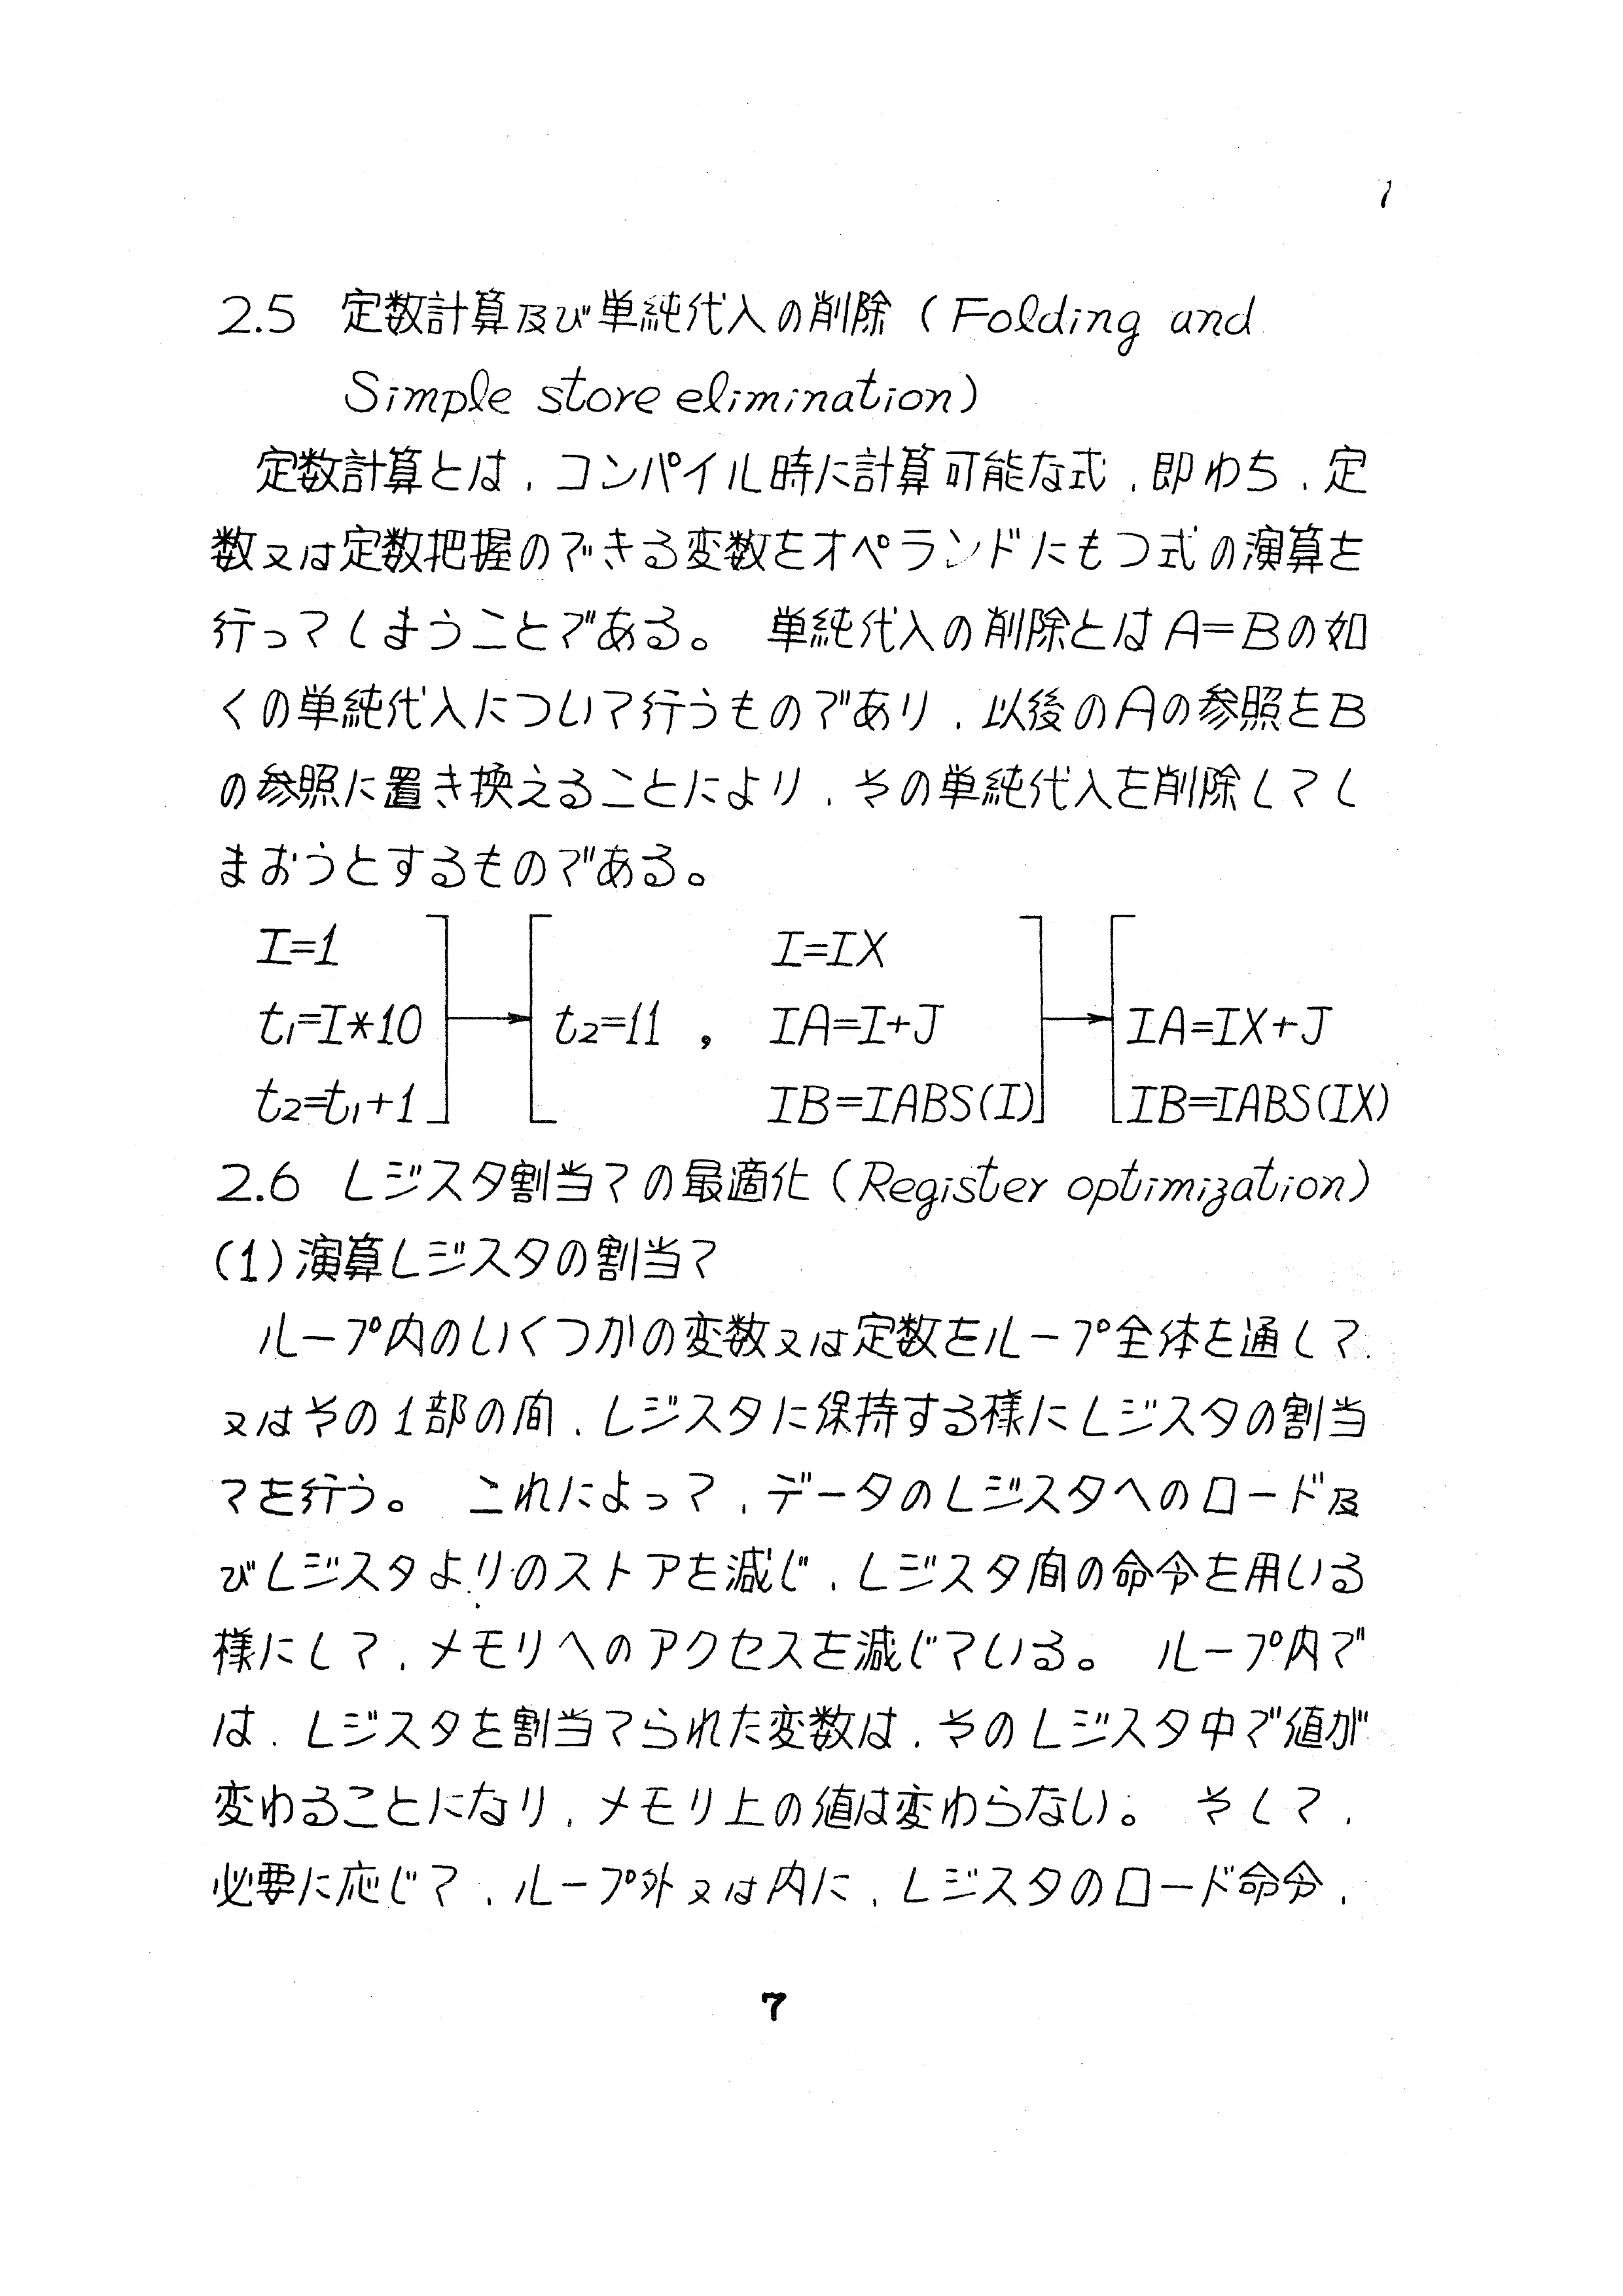 7
2.5 定数計算及び単純代入の削除（Folding and
Simple store elimination）
定数計算とは、コンパイル時に計算可能な式、即わち、定
数又は定数把握のできる変数をオペランドにもつ式の演算を
行ってしまうことである。 単純代入の削除とはA=Bの如
くの単純代入について行うものであり、以後のAの参照をB
の参照に置き換えることにより、その単純代入を削除してし
まおうとするものである。
I=1 I=IX
t1=I*10 → t2=11 , IA=I+J → IA=IX+J
t2=t1+1 IB=IABS(I) IB=IABS(IX)
2.6 レジスタ割当ての最適化（Register optimization）
(1)演算レジスタの割当て
ループ内のいくつかの変数又は定数をループ全体を通して、
又はその1部の間、レジスタに保持する様にレジスタの割当
てを行う。 これによって、データのレジスタへのロード及
びレジスタよりのストアを減じ、レジスタ間の命令を用いる
様にして、メモリへのアクセスを減じている。 ループ内で
は、レジスタを割当てられた変数は、そのレジスタ中で値が
変わることになり、メモリ上の値は変わらない。 そして、
必要に応じて、ループ外又は内に、レジスタのロード命令、
7